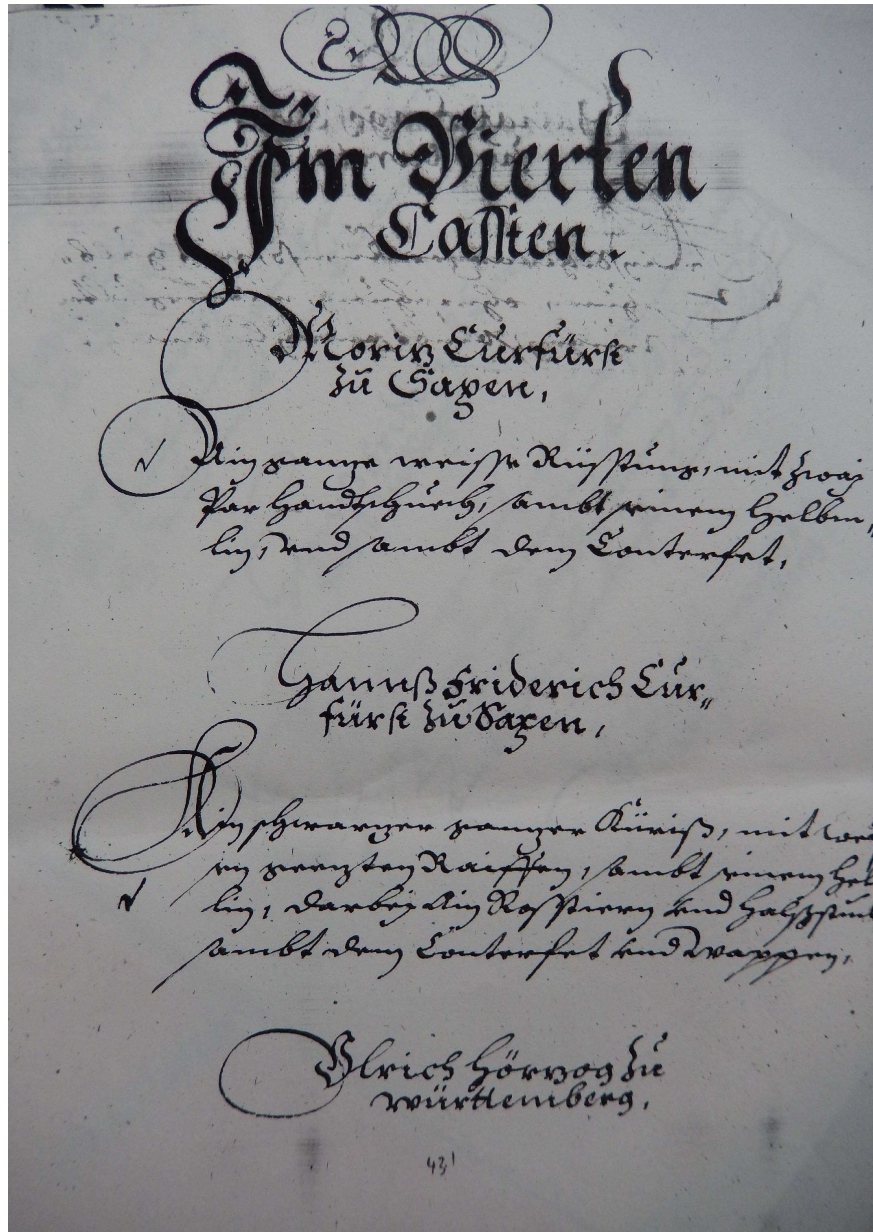 Im Vierten
Cassten.
Moritz Curfürst
zu Saxen,
Ain gantze weisse Rüsstung, mit zwaÿ
Par Handtschuech, sambt seinem Helbm„
lin, vnd sambt dem Conterfet,
Hannß Friderich Cur„
fürst zu Saxen,
Ain schwartzer gantzer Küriß, mit
geezten Raiffen, sambt seinem
lin, darbeÿ Ain Rossstiern vnd
sambt dem Conterfet vnd Wappen,
Vlrich Hörtzog zu
Württemberg,
43